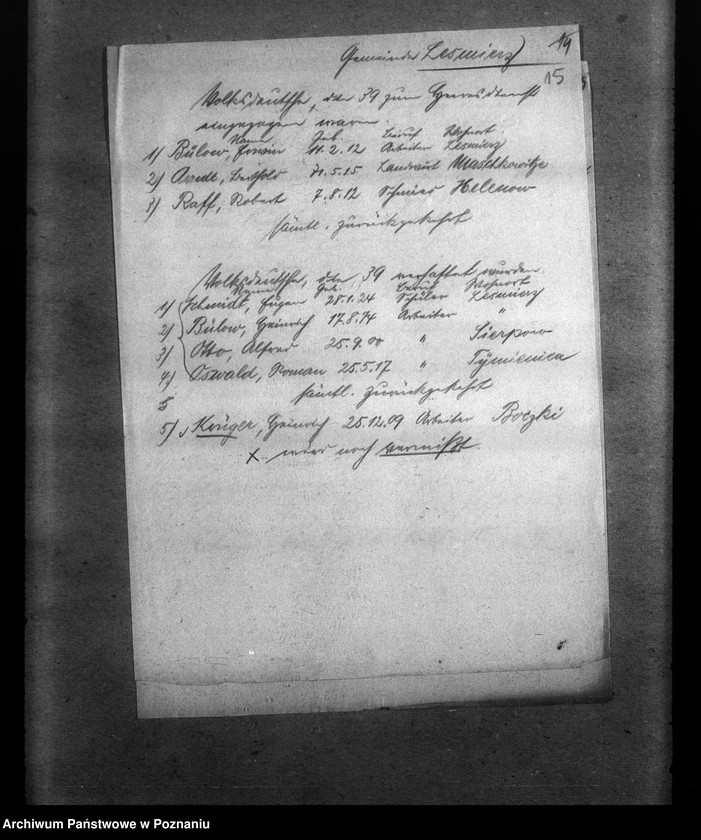 14
Gemeinde Lesmierz
15
Volksdeutsche, die 39 zum Heeresdienst
eingezogen waren.
Name Geb. Beruf Wohnort
1) Bülow, Erwin 11.2.12 Arbeiter Lesmierz
2) Arndt, Berthold 11.5.15 Landwirt Maschkowitze
3) Raff, Robert 7.8.12 Schmied Helenow
sämtl. zurückgekehrt
Volksdeutsche, die 39 verhaftet wurden.
Name Geb. Beruf Wohnort
1) Schmidt, Eugen 28.1.24 Schüler Lesmierz
2) Bülow, Heinrich 17.8.74 Arbeiter "
3) Otto, Alfred 25.9.00 " Sierpow
4) Oswald, Roman 25.5.17 " Tymienica
sämtl. zurückgekehrt
5
5) Krüger, Heinrich 25.12.09 Arbeiter Boczki
x wird noch vermißt.
Archiwum Państwowe w Poznaniu